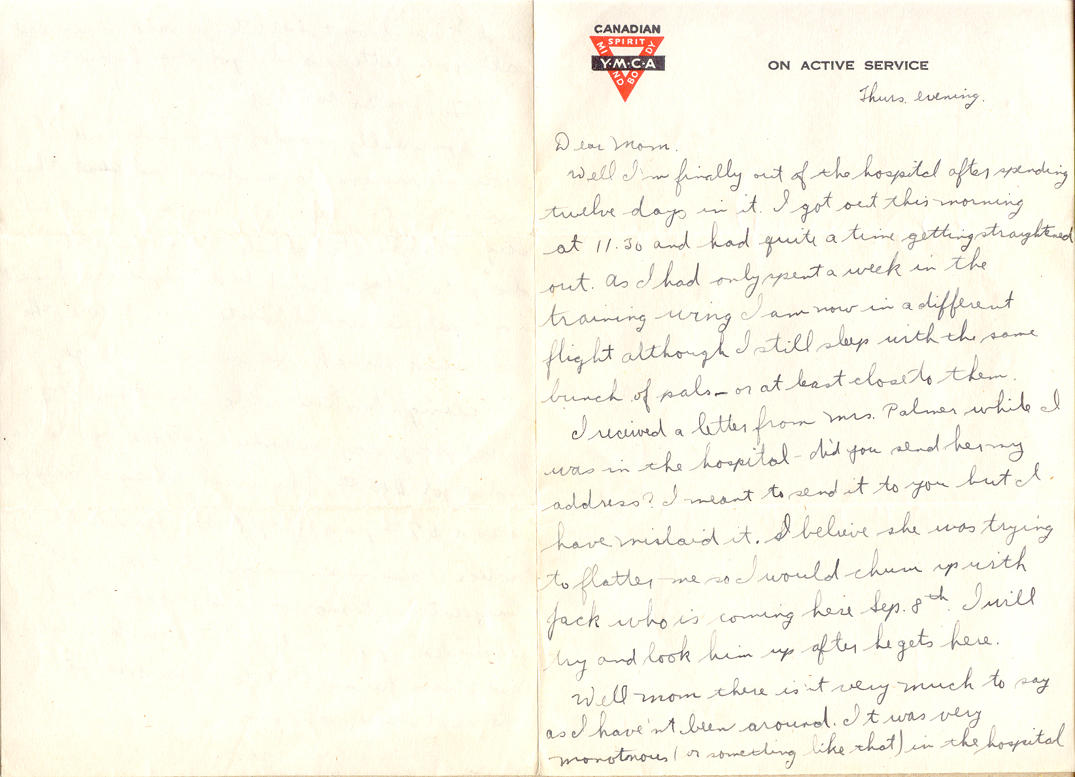 CANADIAN
SPIRIT
MIND
BODY
Y·M·C·A
ON ACTIVE SERVICE
Thurs. evening.
Dear Mom.
Well I'm finally out of the hospital after spending
twelve days in it. I got out this morning
at 11.30 and had quite a time getting straightened
out. As I had only spent a week in the
training wing I am now in a different
flight although I still sleep with the same
bunch of pals – or at least close to them.
I received a letter from Mrs. Palmer while I
was in the hospital – did you send her my
address? I meant to send it to you but I
have mislaid it. I believe she was trying
to flatter me so I would chum up with
Jack who is coming here Sep. 8th. I will
try and look him up after he gets here.
Well mom there isn't very much to say
as I have'nt been around. It was very
monotnous (or something like that) in the hospital